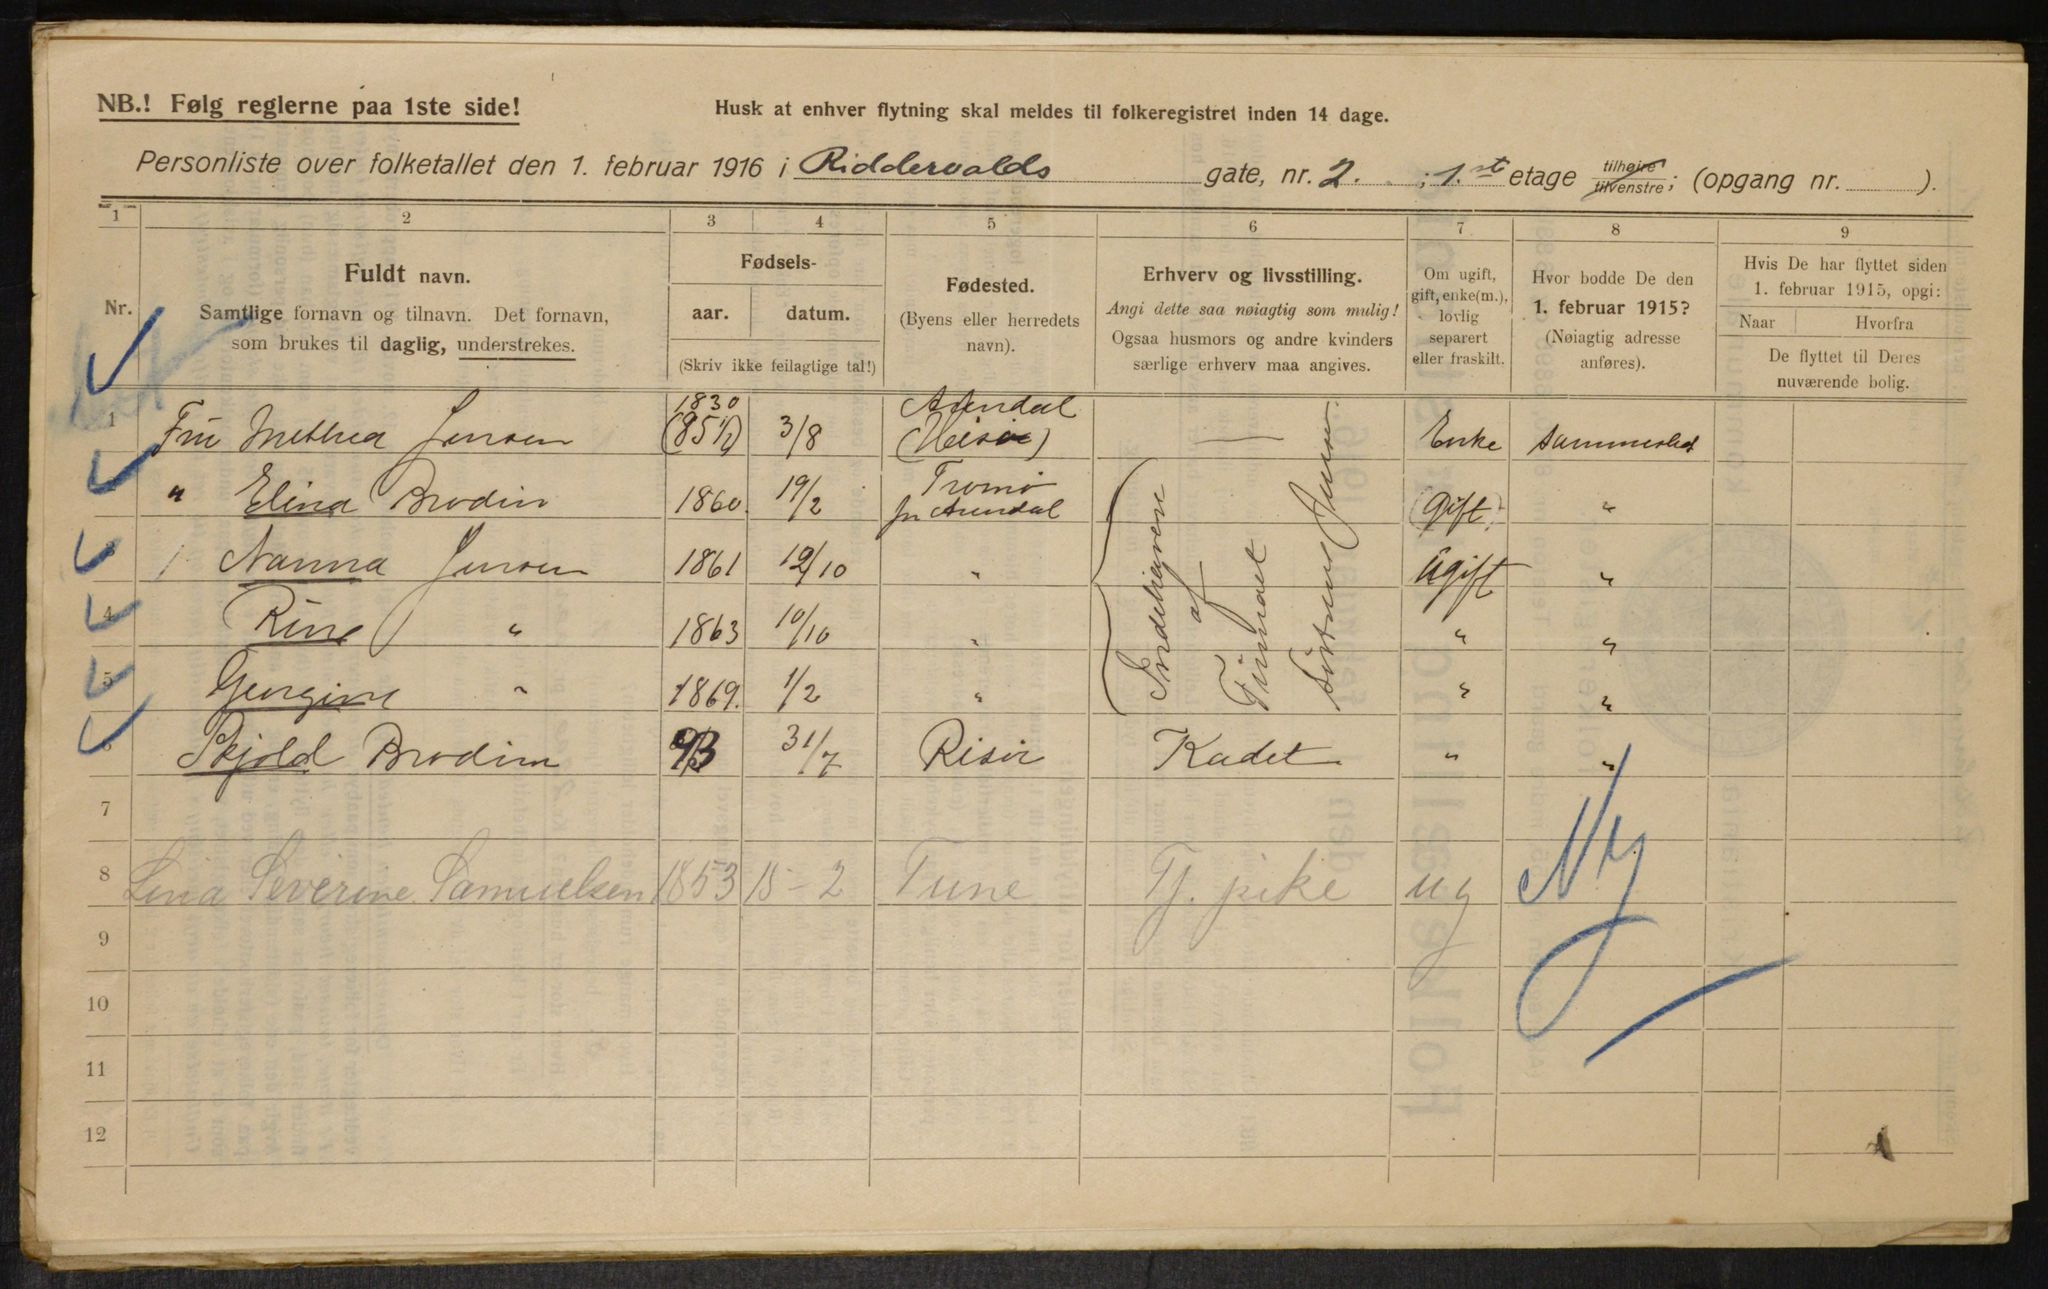 NB.! Følg reglerne paa 1ste side!
Husk at enhver flytning skal meldes til folkeregistret inden 14 dage.
Personliste over folketallet den 1. februar 1916 i Riddervolds gate, nr. 2. ; 1.st etage tilhøire tilvenstre; (opgang nr. ).
1 2 3 4 5 6 7 8 9
Nr.
Fuldt navn.
Samtlige fornavn og tilnavn. Det fornavn,
som brukes til daglig, understrekes.
Fødsels-
aar. datum.
(Skriv ikke feilagtige tal!)
Fødested.
(Byens eller herredets
navn).
Erhverv og livsstilling.
Angi dette saa nøiagtig som mulig!
Ogsaa husmors og andre kvinders
særlige erhverv maa angives.
Om ugift,
gift, enke(m.),
lovlig
separert
eller fraskilt.
Hvor bodde De den
1. februar 1915?
(Nøiagtig adresse
anføres).
Hvis De har flyttet siden
1. februar 1915, opgi:
Naar Hvorfra
De flyttet til Deres
nuværende bolig.
1830 Arendal
1 Fru Methea Jensen (85½) 3/8 (Hisø) — Enke Sammested
" Elina Brodin 1860. 19/2 Tromø Gift "
pr Arendal
3 Nanna Jensen 1861 12/10 " Ugift "
4 Rine " 1863 10/10 " " "
5 Georgine " 1869. 1/2 " " "
Indehavere
af
Firmaet
Jensen
6 Skjold Brodin 93 31/7 Risør Kadet " "
7
8 Lina Severine Samuelsen 1853 15-2 Tune Tj. pike ug Ny
9
10
11
12